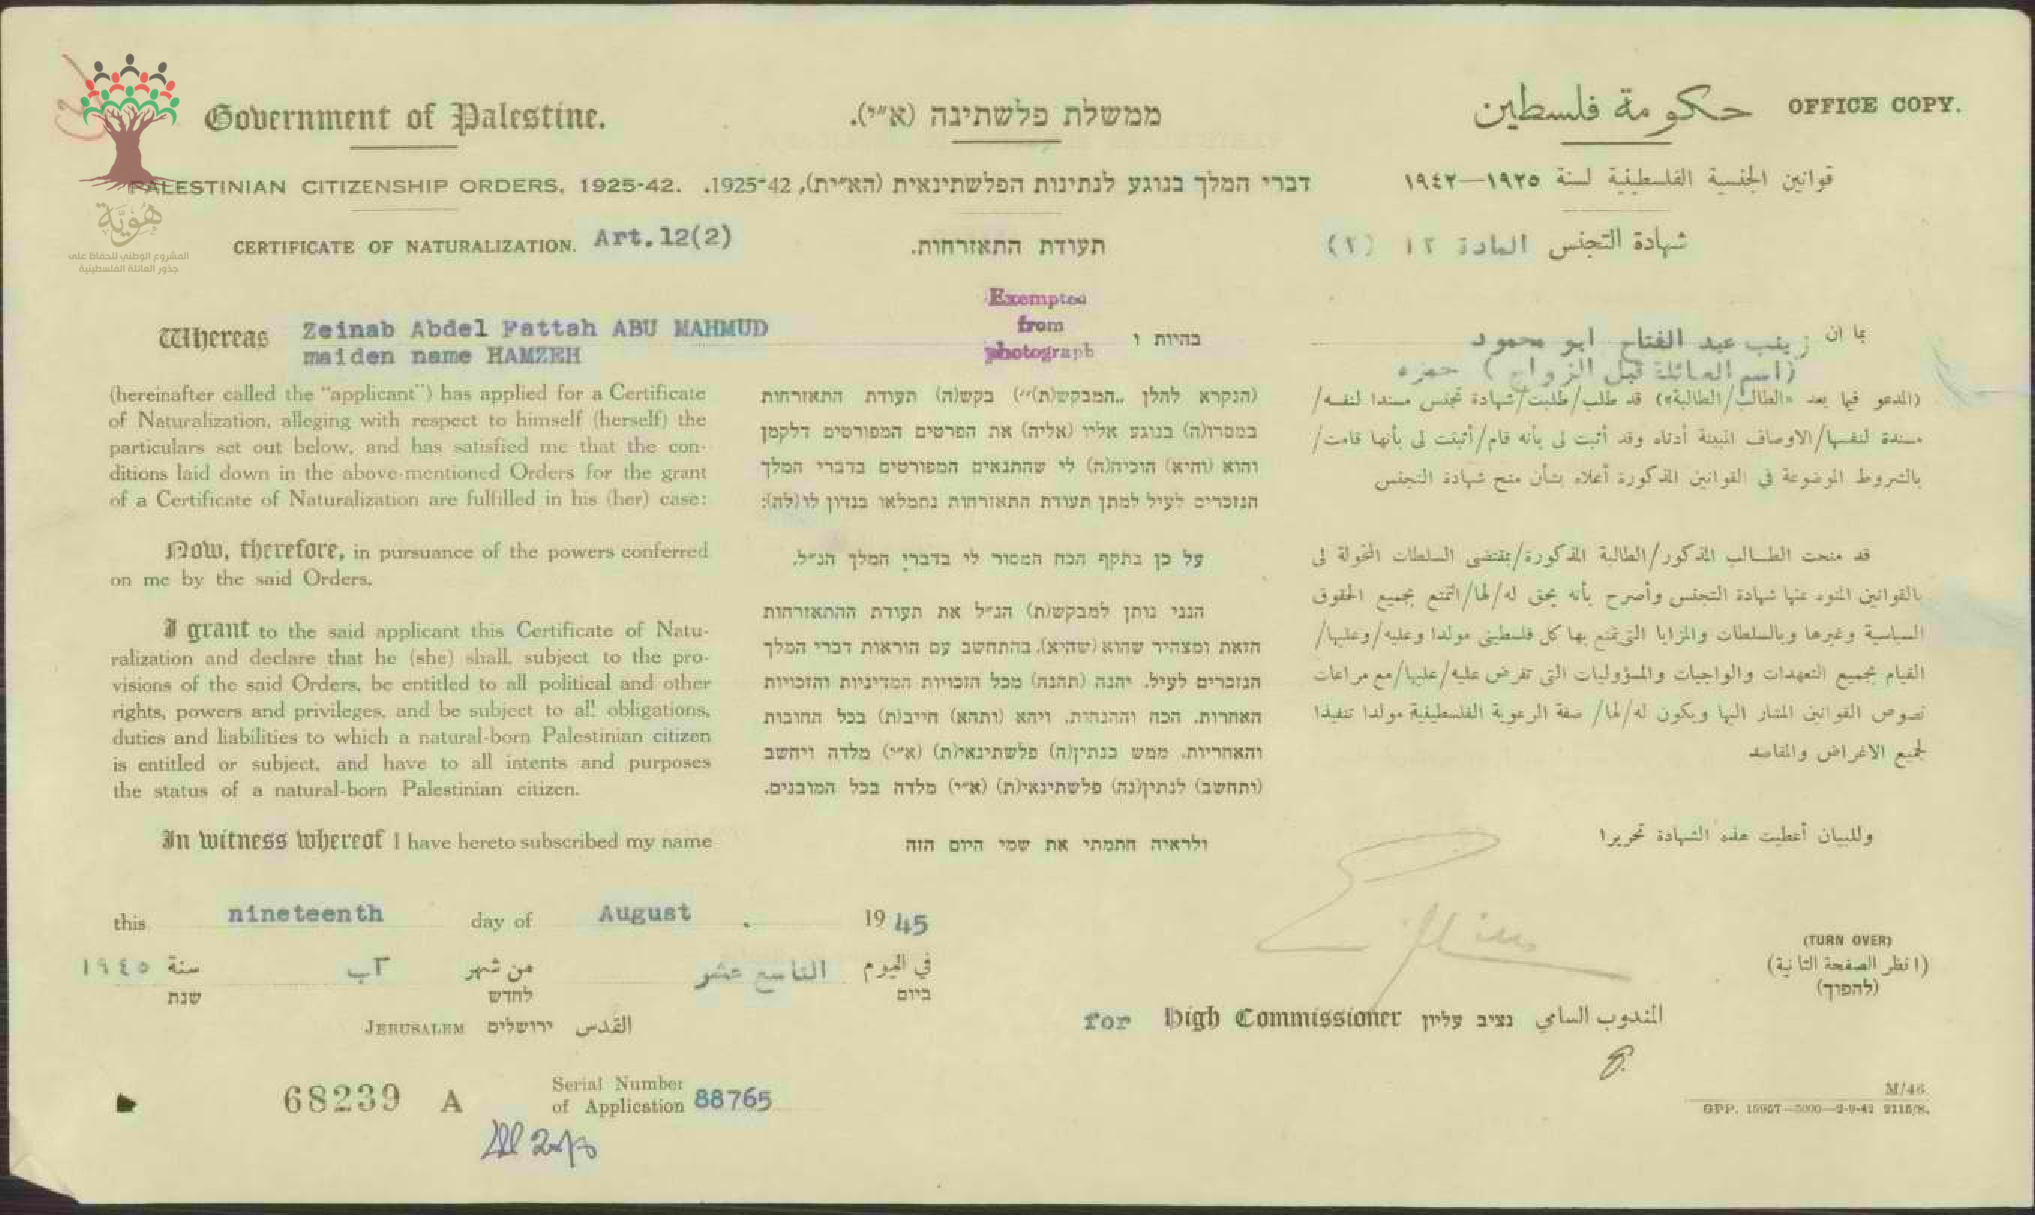 Government of Palestine.
ממשלת פלשתינה (א״י).
حكومة فلسطين
OFFICE COPY.
PALESTINIAN CITIZENSHIP ORDERS, 1925-42.
דברי המלך בנוגע לנתינות הפלשתינאית (הא״ית), 1925-42.
قوانين الجنسية الفلسطينية لسنة ١٩٢٥—١٩٤٢
هُوِيَّة
المشروع الوطني للحفاظ على
جذور العائلة الفلسطينية
CERTIFICATE OF NATURALIZATION. Art.12(2)
תעודת התאזרחות.
شهادة التجنس المادة ١٢ (٢)
Exempted
from
photograph
Whereas Zeinab Abdel Fattah ABU MAHMUD
maiden name HAMZEH
(hereinafter called the "applicant") has applied for a Certificate
of Naturalization, alleging with respect to himself (herself) the
particulars set out below, and has satisfied me that the con-
ditions laid down in the above-mentioned Orders for the grant
of a Certificate of Naturalization are fulfilled in his (her) case:
Now, therefore, in pursuance of the powers conferred
on me by the said Orders.
I grant to the said applicant this Certificate of Natu-
ralization and declare that he (she) shall, subject to the pro-
visions of the said Orders, be entitled to all political and other
rights, powers and privileges, and be subject to all obligations,
duties and liabilities to which a natural-born Palestinian citizen
is entitled or subject, and have to all intents and purposes
the status of a natural-born Palestinian citizen.
In witness whereof I have hereto subscribed my name
בהיות ו
(הנקרא להלן ״המבקש(ת)״) בקש(ה) תעודת התאזרחות
במסרו(ה) בנוגע אליו (אליה) את הפרטים המפורטים דלקמן
והוא (והיא) הוכיח(ה) לי שהתנאים המפורטים בדברי המלך
הנזכרים לעיל למתן תעודת התאזרחות נתמלאו בנדון לו(לה):
על כן בתקף הכח המסור לי בדברי המלך הנ״ל.
הנני נותן למבקש(ת) הנ״ל את תעודת ההתאזרחות
הזאת ומצהיר שהוא (שהיא), בהתחשב עם הוראות דברי המלך
הנזכרים לעיל. יהנה (תהנה) מכל הזכויות המדיניות והזכויות
האחרות. הכח וההנחות. ויהא (ותהא) חייב(ת) בכל החובות
והאחריות. ממש כנתין(ה) פלשתינאי(ת) (א״י) מלדה ויחשב
(ותחשב) לנתין(נה) פלשתינאי(ת) (א״י) מלדה בכל המובנים.
ולראיה חתמתי את שמי היום הזה
بما ان زينب عبد الفتاح ابو محمود
(اسم العائلة قبل الزواج) حمزه
(المدعو فيما بعد «الطالب/الطالبة») قد طلب/طلبت/شهادة تجنس مسندا لنفسه/
مسندة لنفسها/الاوصاف المبينة أدناه وقد أثبت لي بأنه قام/أثبتت لي بأنها قامت/
بالشروط الموضوعة في القوانين المذكورة أعلاه بشأن منح شهادة التجنس
قد منحت الطالب المذكور/الطالبة المذكورة/بمقتضى السلطات المخولة لي
بالقوانين المنوه عنها شهادة التجنس وأصرح بأنه يحق له/لها/التمتع بجميع الحقوق
السياسية وغيرها وبالسلطات والمزايا التي يتمتع بها كل فلسطيني مولدا وعليه/وعليها/
القيام بجميع التعهدات والواجبات والمسؤوليات التي تفرض عليه/عليها/مع مراعات
نصوص القوانين المشار اليها ويكون له/لها/ صفة الرعوية الفلسطينية مولدا تنفيذا
لجميع الاغراض والمقاصد
وللبيان أعطيت هذه الشهادة تحريرا
this nineteenth day of August 1945
في اليوم التاسع عشر من شهر آب سنة ١٩٤٥
ביום לחדש שנת
JERUSALEM ירושלים القدس
(TURN OVER)
(انظر الصفحة الثانية)
(להפוך)
for High Commissioner נציב עליון المندوب السامي
68239 A
Serial Number
of Application 88765
M/46.
GPP. 15957—5000—2-9-42 2115/S.